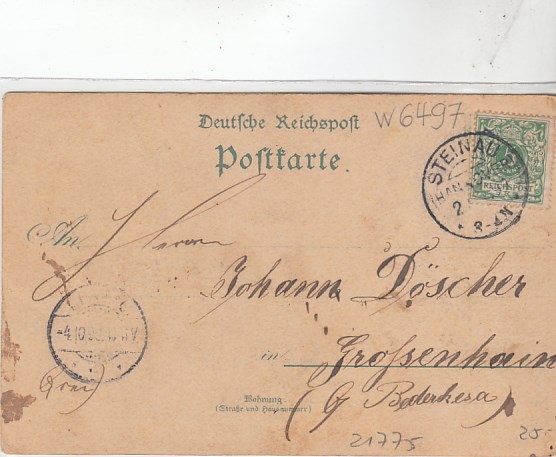 W6497
Deutsche Reichspost
Postkarte.
STEINAU
HAN
2
3-4N
REICHSPOST
An Herrn
Johann Döscher
in Grossenhain
(frei)
Wohnung
(Straße und Hausnummer)
b/ Bederkesa)
-4.10.9
21775
20-